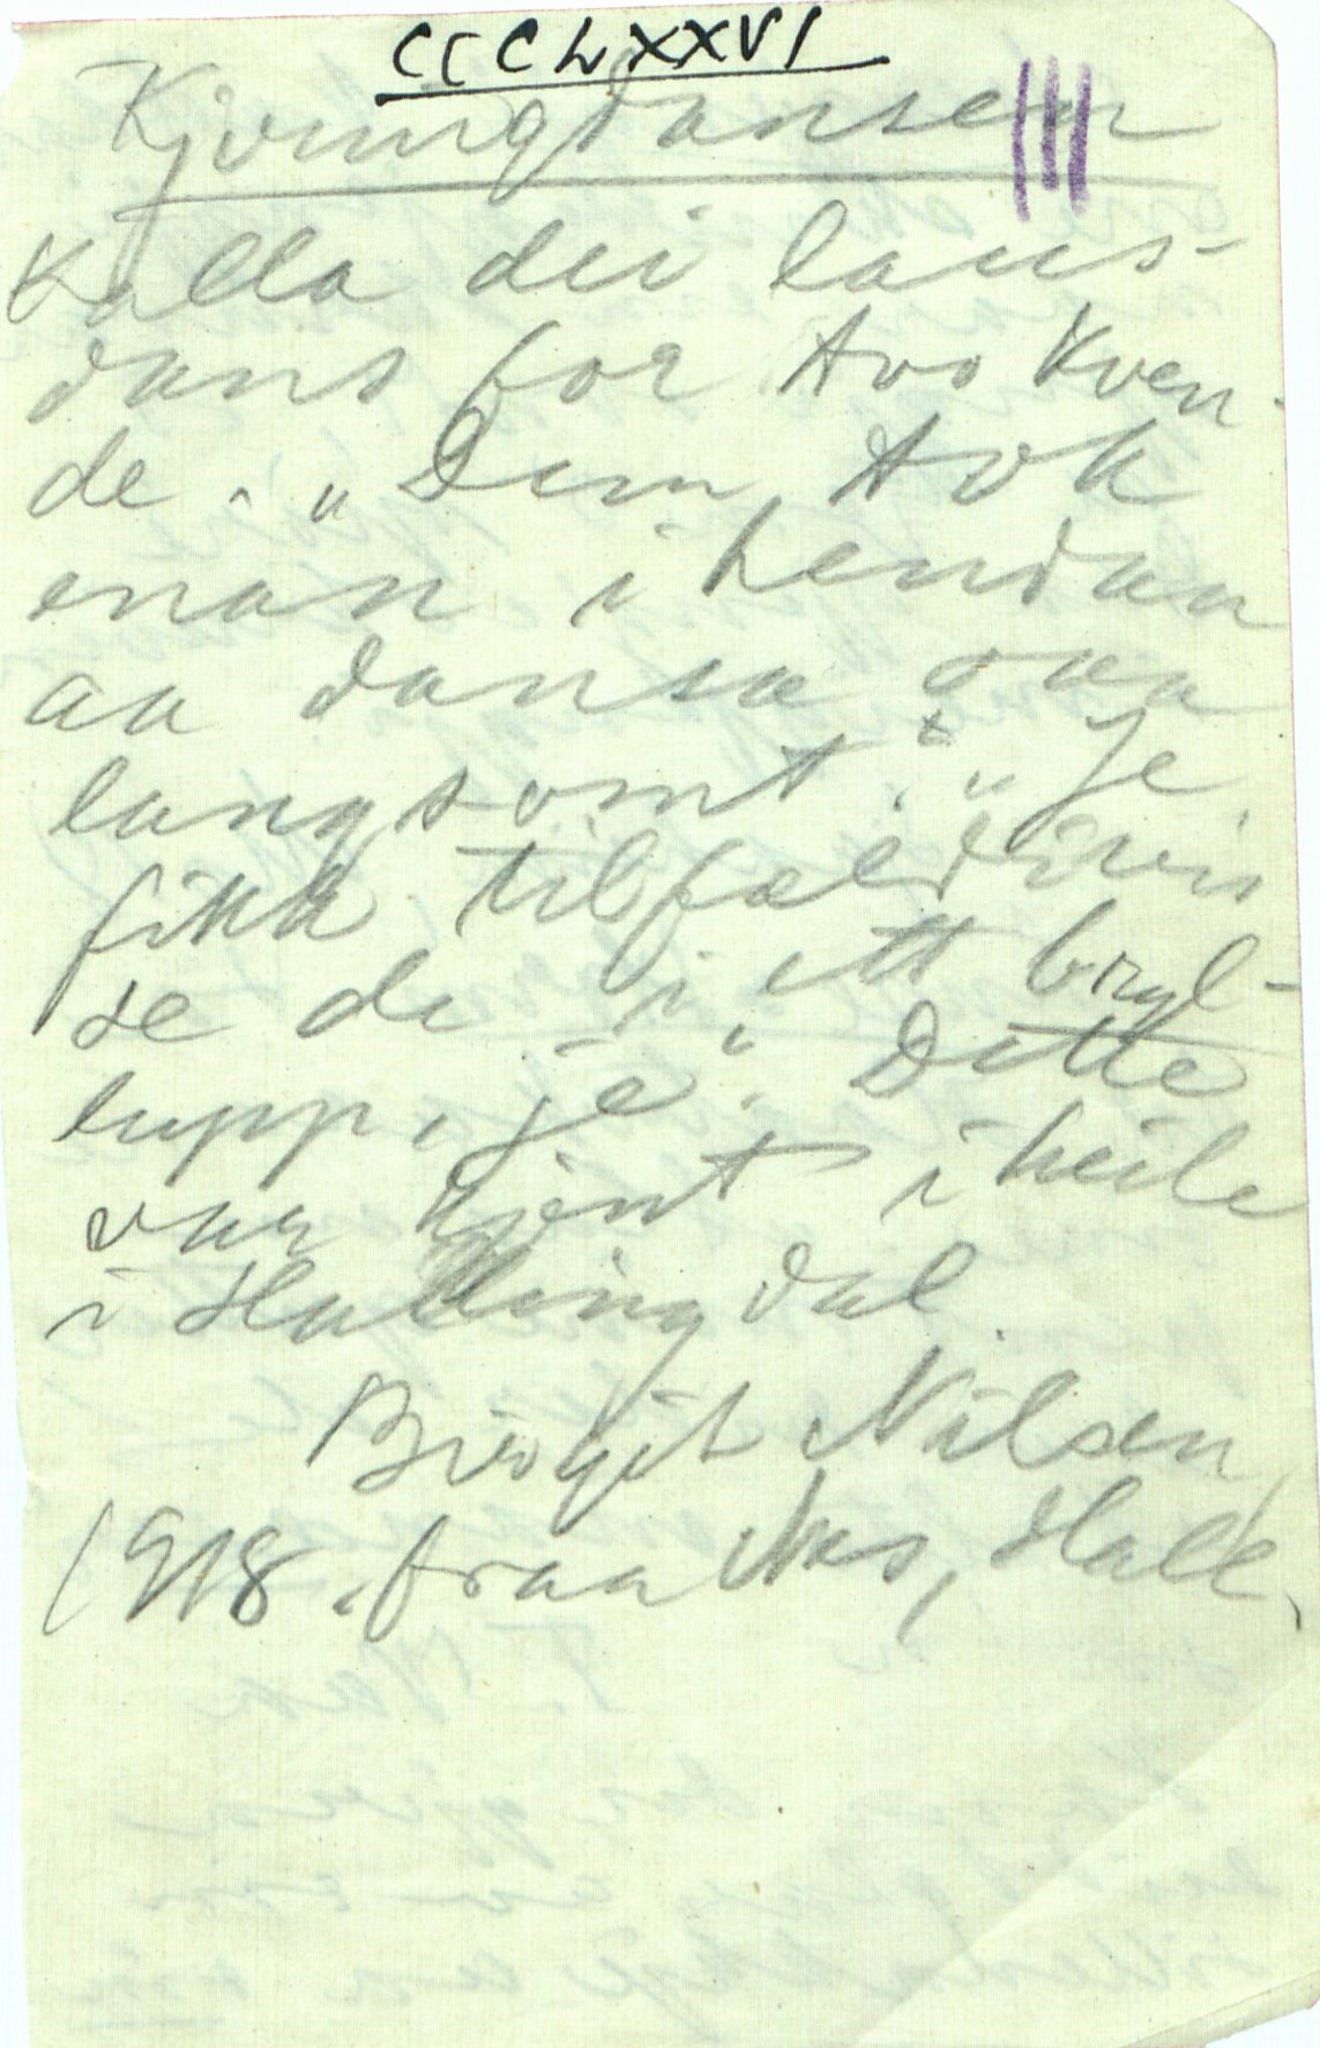 CCCLXXVI
Kjerringdansen
Kalla dei laus-
dans for two kven-
de. "Dem tok
enan i hendan
aa dansa saa
langsomt." "Je
fikk tilfældivis
se de i ett bryl-
lupp, je". Dette
var kjent i heile
i Hallingdal.
Birgit Nilsen
1918. fraa Aas, Hall.